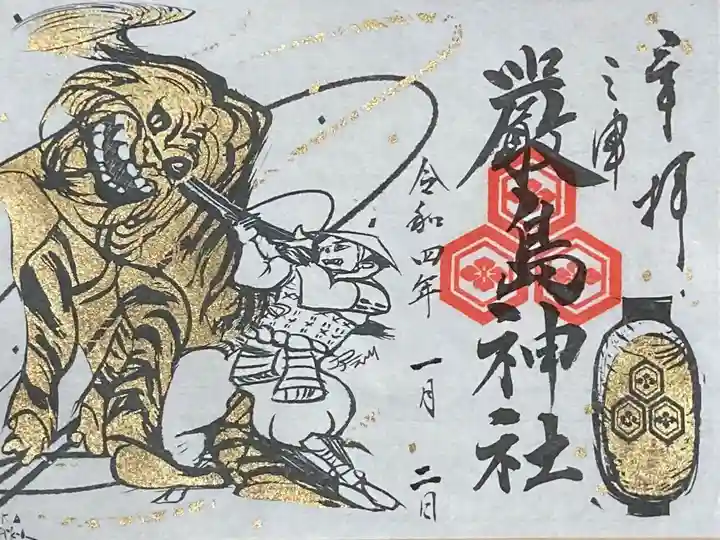 奉拝
三津
厳島神社
令和四年 一月 二日